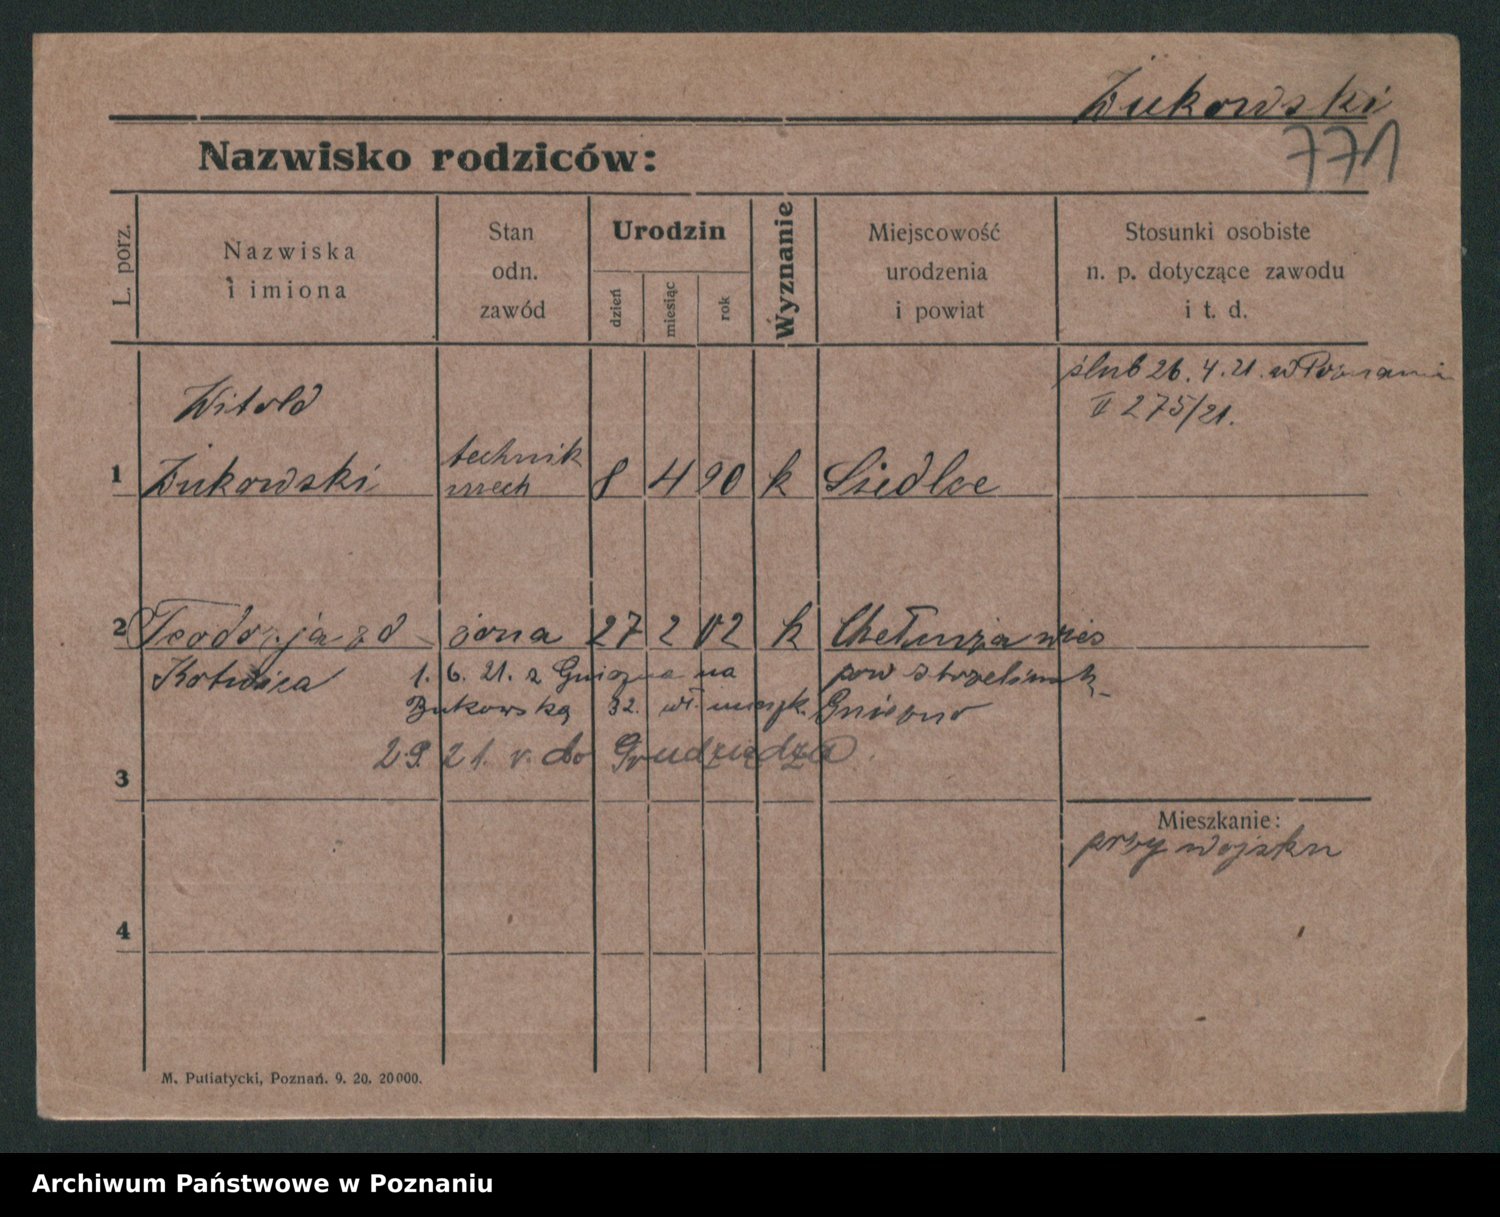 Żukowski
771
Nazwisko rodziców:
L. porz.
Nazwiska
i imiona
Stan
odn.
zawód
Urodzin
dzień
miesiąc
rok
Wyznanie
Miejscowość
urodzenia
i powiat
Stosunki osobiste
n. p. dotyczące zawodu
i t. d.
ślub 26. 4. 21. w Poznaniu
II 275/21.
Witold
1 Żukowski technik mech 8 4 90 k Siedlce
2 Teodozja zd żona 27 2 02 k wieś
Kotwica 1. 6. 21. z Gniezna na pow
Bukowską 32. wł. mieszk. Gniezno
29. 21. v. do Grudziądza.
3
Mieszkanie:
przy wojsku
4
M. Putiatycki, Poznań. 9. 20. 20000.
Archiwum Państwowe w Poznaniu